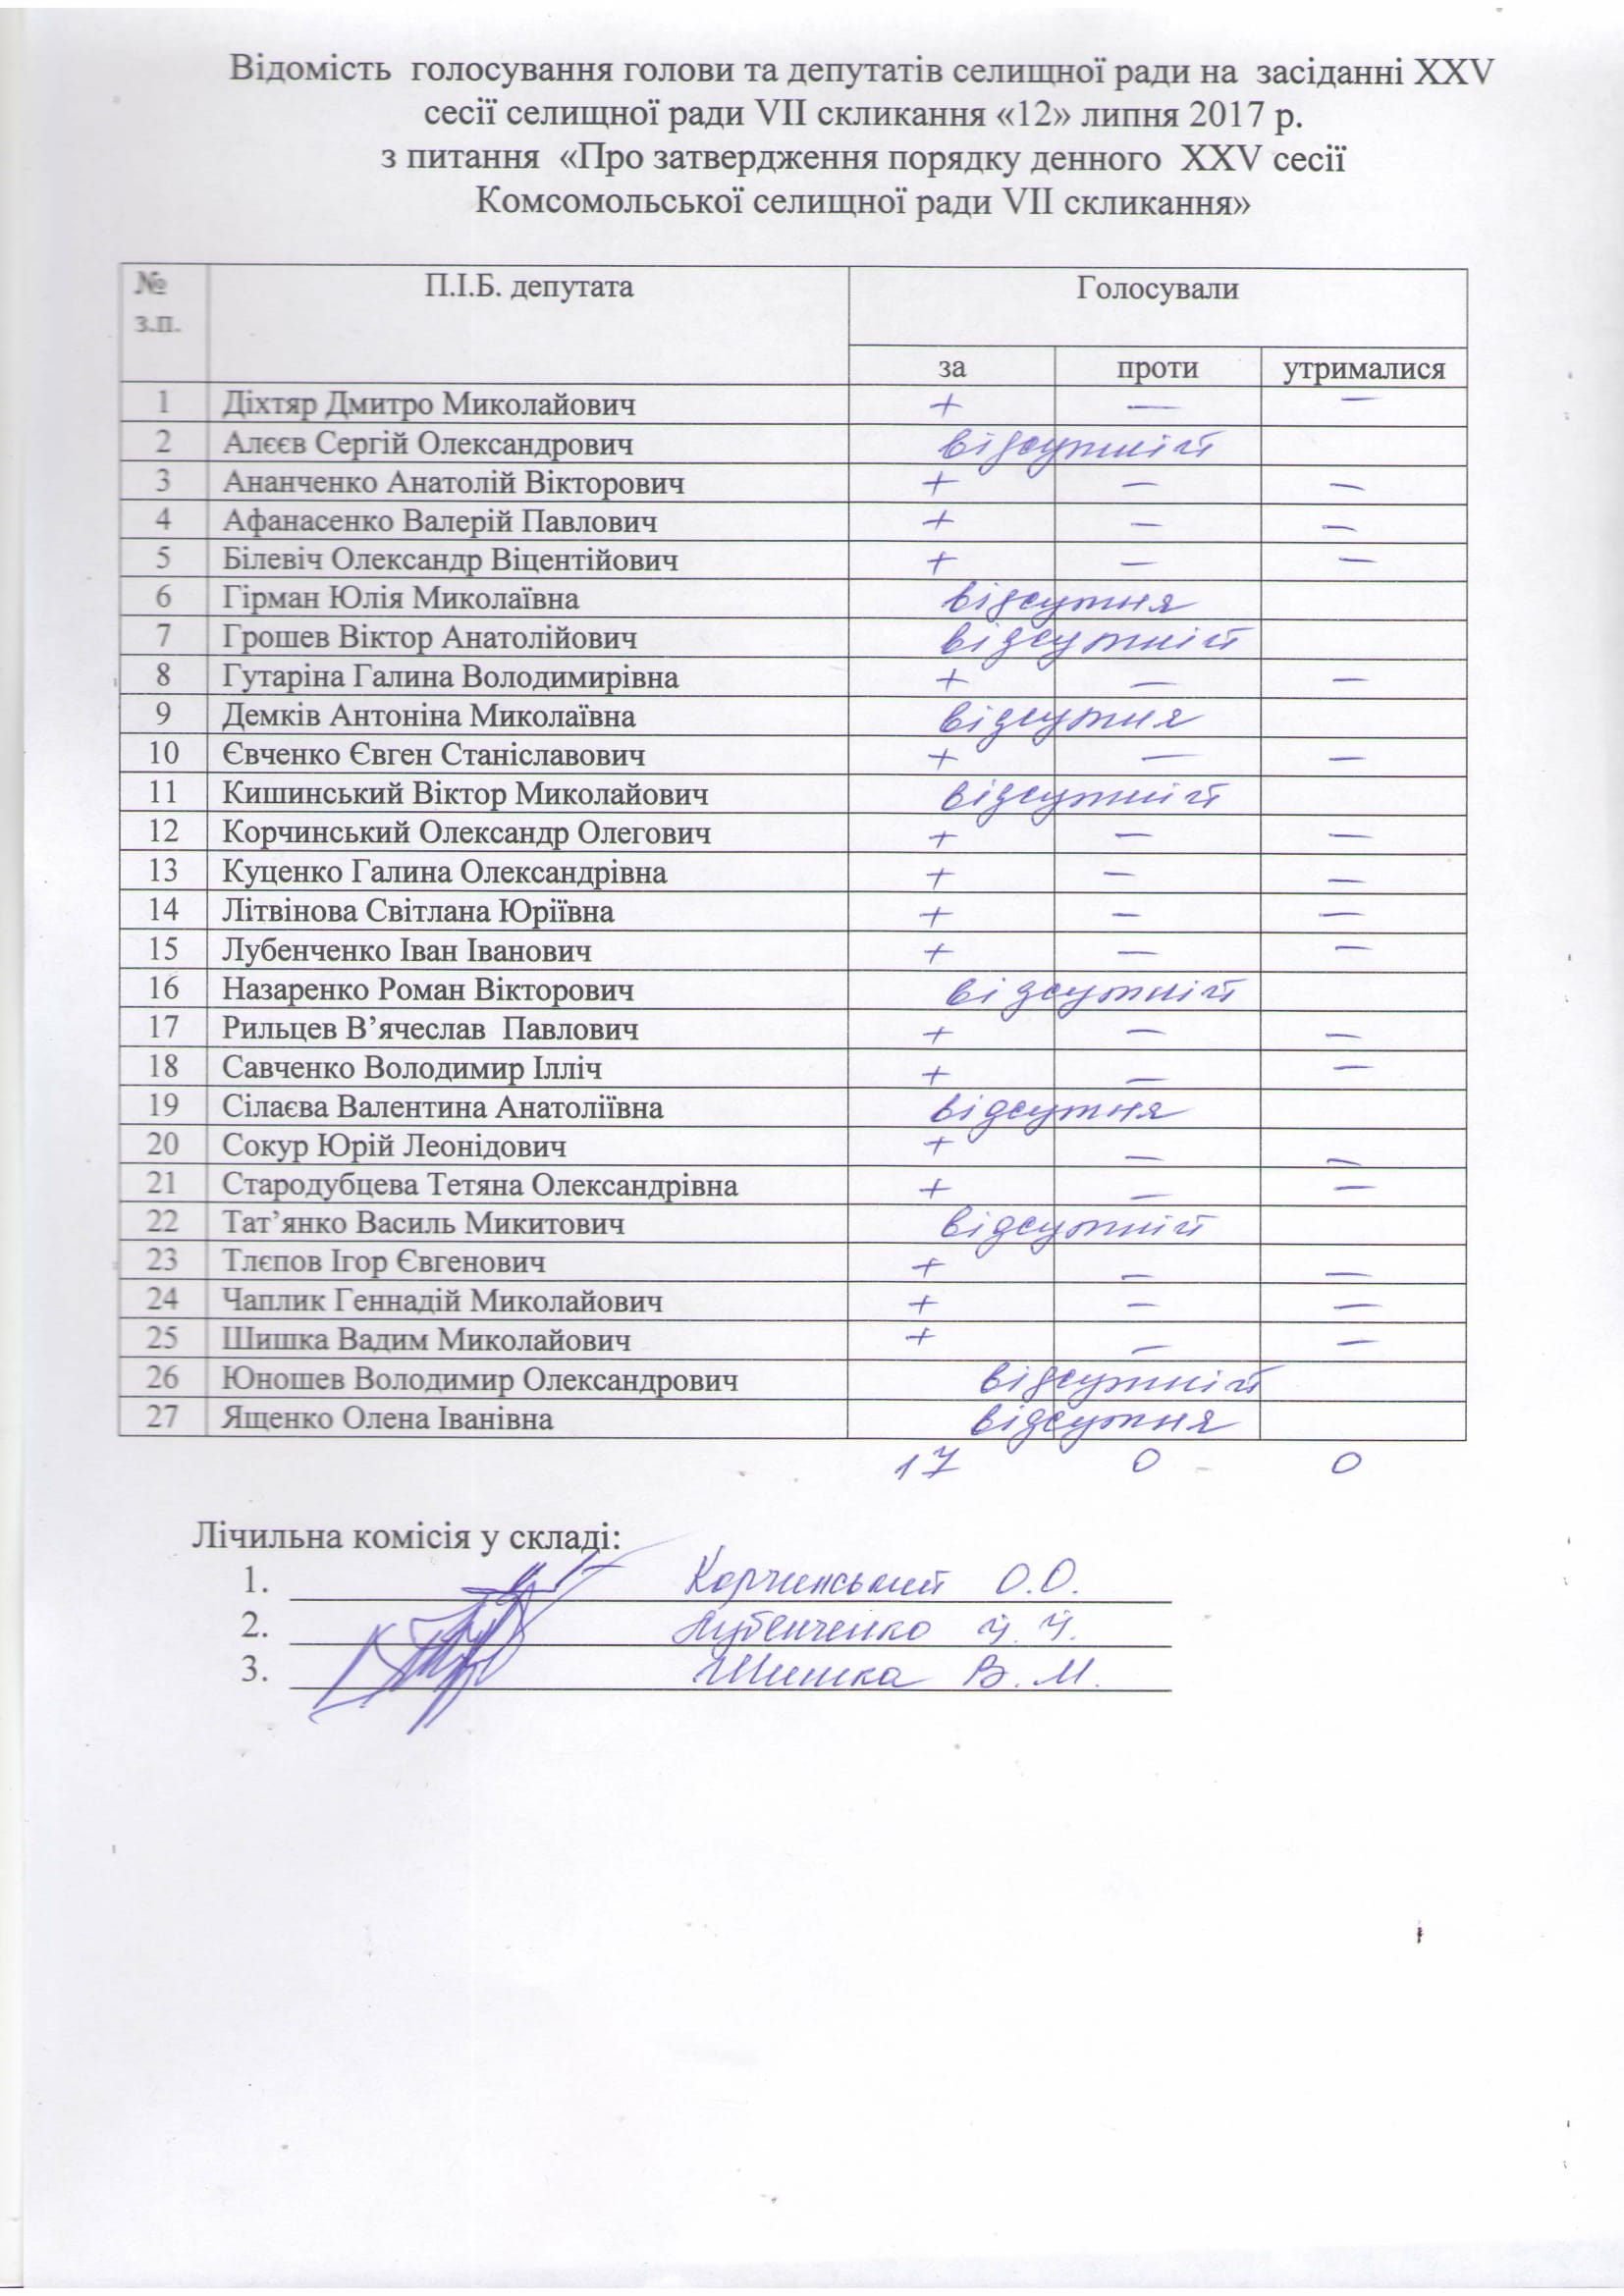 Відомість голосування голови та депутатів селищної ради на засіданні XXV
сесії селищної ради VII скликання «12» липня 2017 р.
з питання «Про затвердження порядку денного XXV сесії
Комсомольської селищної ради VII скликання»
№ з.п. П.І.Б. депутата Голосували
за проти утрималися
1 Діхтяр Дмитро Миколайович + — —
2 Алєєв Сергій Олександрович відсутній
3 Ананченко Анатолій Вікторович + — —
4 Афанасенко Валерій Павлович + — —
5 Білевіч Олександр Віцентійович + — —
6 Гірман Юлія Миколаївна відсутня
7 Грошев Віктор Анатолійович відсутній
8 Гутаріна Галина Володимирівна + — —
9 Демків Антоніна Миколаївна відсутня
10 Євченко Євген Станіславович + — —
11 Кишинський Віктор Миколайович відсутній
12 Корчинський Олександр Олегович + — —
13 Куценко Галина Олександрівна + — —
14 Літвінова Світлана Юріївна + — —
15 Лубенченко Іван Іванович + — —
16 Назаренко Роман Вікторович відсутній
17 Рильцев В’ячеслав Павлович + — —
18 Савченко Володимир Ілліч + — —
19 Сілаєва Валентина Анатоліївна відсутня
20 Сокур Юрій Леонідович + — —
21 Стародубцева Тетяна Олександрівна + — —
22 Тат’янко Василь Микитович відсутній
23 Тлєпов Ігор Євгенович + — —
24 Чаплик Геннадій Миколайович + — —
25 Шишка Вадим Миколайович + — —
26 Юношев Володимир Олександрович відсутній
27 Ященко Олена Іванівна відсутня
17 0 0
Лічильна комісія у складі:
1. Корчинський О.О.
2. Лубенченко І. І.
3. Шишка В. М.